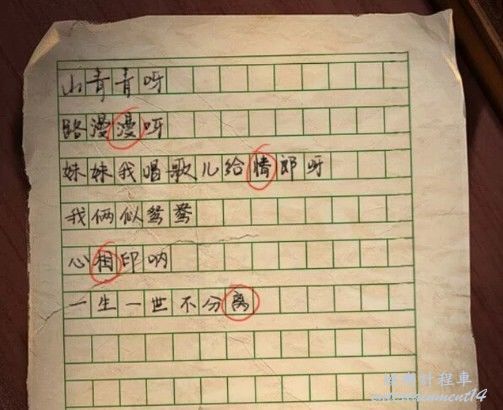 山青青呀
路漫漫呀
妹妹我唱歌儿给情郎呀
我俩似鸳鸯
心相印呐
一生一世不分离
entertainment14